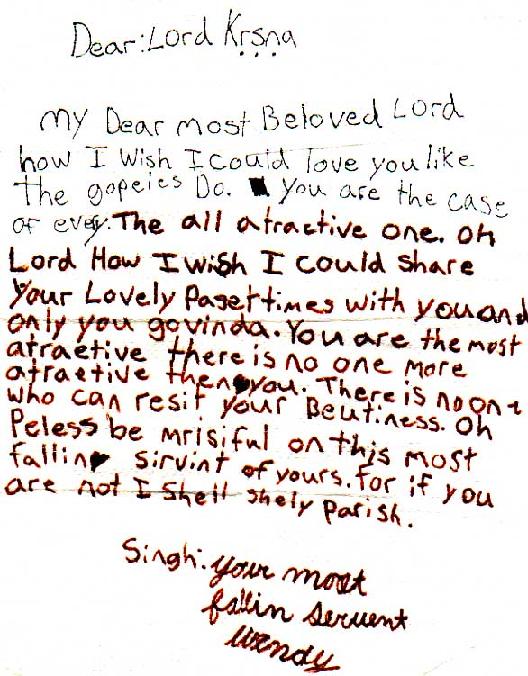 Dear: Lord Krṣṇa
My Dear most Beloved Lord
how I Wish I could love you like
The gopeies Do. you are the case
of evey. The all atractive one. oh
Lord How I wish I could share
your Lovely Pasettimes with you and
only you govinda. You are the most
atractive there is no one more
atractive then you. There is no one
who can resit your Beutiness. Oh
Peless be mrisiful on this most
fallin sirvint of yours. for if you
are not I Shell shely Parish.
Singh: your most
fallin servent
Wendy